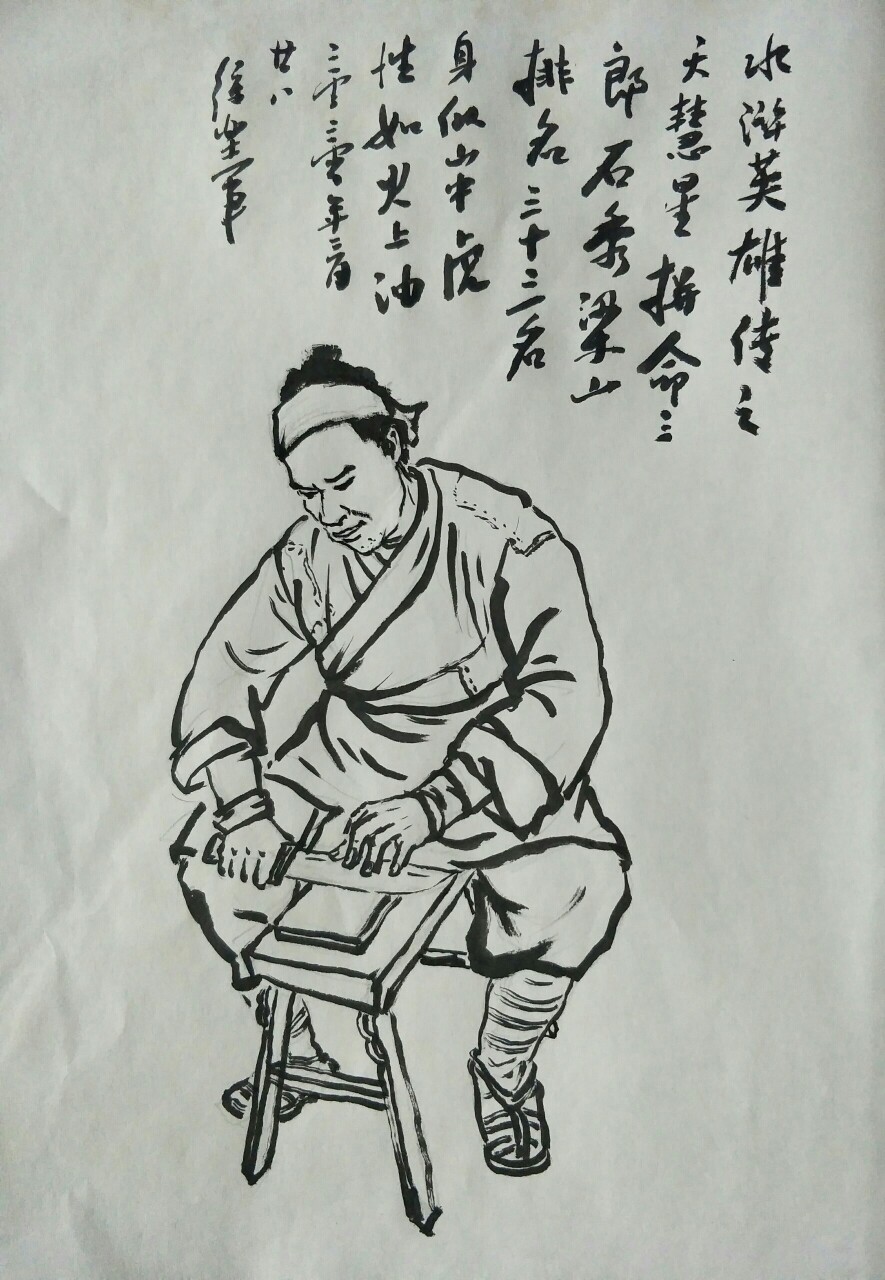 水浒英雄传之
天慧星拼命三
郎石秀梁山
排名三十三名
身似山中虎
性如火上油
二零二零年二月
廿八
徐军